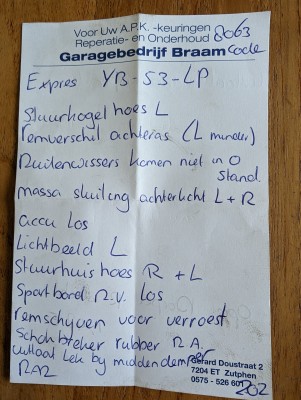 Voor Uw A.P.K. -keuringen
Reperatie- en Onderhoud 8063
Garagebedrijf Braam Code
Expres YB-53-LP
Stuurkogel hoes L
remverschil achteras (L minder)
Ruitenwissers komen niet in O
stand.
massa sluiting achterlicht L + R
accu los
Lichtbeeld L
Stuurhuis hoes R + L
Spatbord R.V. los
remschyven voor verroest
Schokbreker rubber R A.
uitlaat lek by middendemper
Gerard Doustraat 2
7204 ET Zutphen
0575 - 526 601
202